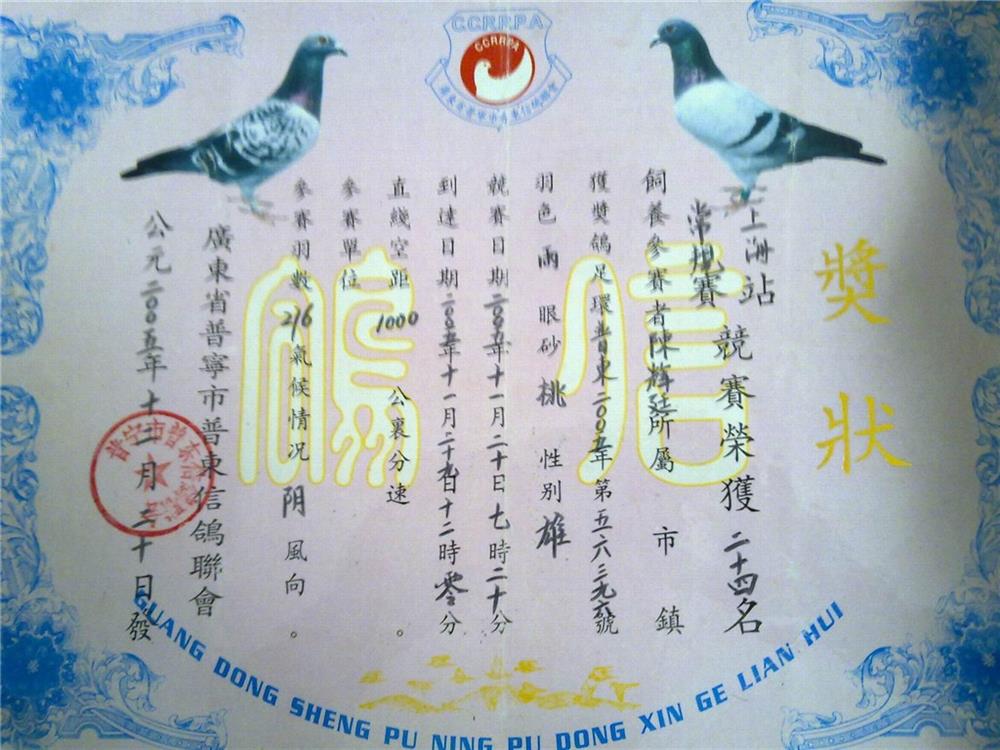 CCRRPA
CCRRPA
獎狀
信鴿
上海站
常規賽
競賽榮獲二十四名
飼養參賽者陳輝所屬 市 鎮
獲獎鴿足環普東二00五年第五六三九六號
羽色雨 眼砂桃 性別雄
競賽日期二00五年十一月二十日七時二十分
到達日期二00五年十一月二十九日十二時零分
直綫空距1000公裏分速 。
參賽單位
參賽羽數216氣候情況阴風向 。
廣東省普寧市普東信鴿聯會
公元二00五年十二月二十日發
GUANG DONG SHENG PU NING PU DONG XIN GE LIAN HUI